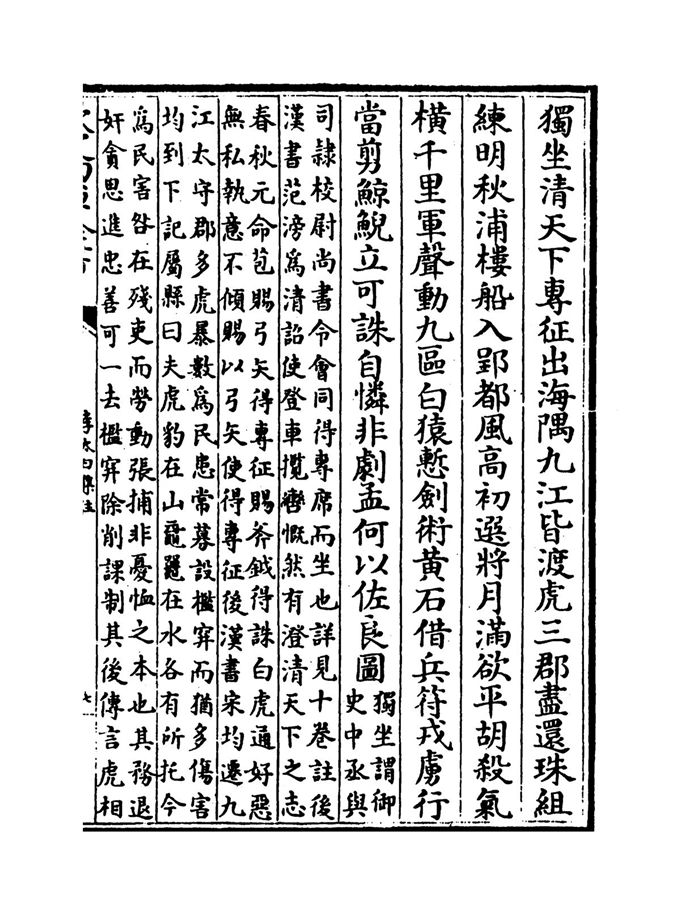 獨坐清天下專征出海隅九江皆渡虎三郡盡還珠組
練明秋浦樓船入郢都風高初選將月滿欲平胡殺氣
橫千里軍聲動九區白猿慙劍術黃石借兵符戎虜行
當剪鯨鯢立可誅自憐非劇孟何以佐良圖
獨坐謂御
史中丞與
司隷校尉尚書令會同得專席而坐也詳見十卷註後
漢書范滂爲清詔使登車攬轡慨然有澄清天下之志
春秋元命苞賜弓矢得專征賜斧鉞得誅白虎通好惡
無私執意不傾賜以弓矢使得專征後漢書宋均遷九
江太守郡多虎暴數爲民患常募設檻穽而猶多傷害
均到下記屬縣曰夫虎豹在山黿鼉在水各有所托今
爲民害咎在殘吏而勞動張捕非憂恤之本也其務退
奸貪思進忠善可一去檻穽除削課制其後傳言虎相
李太白集注